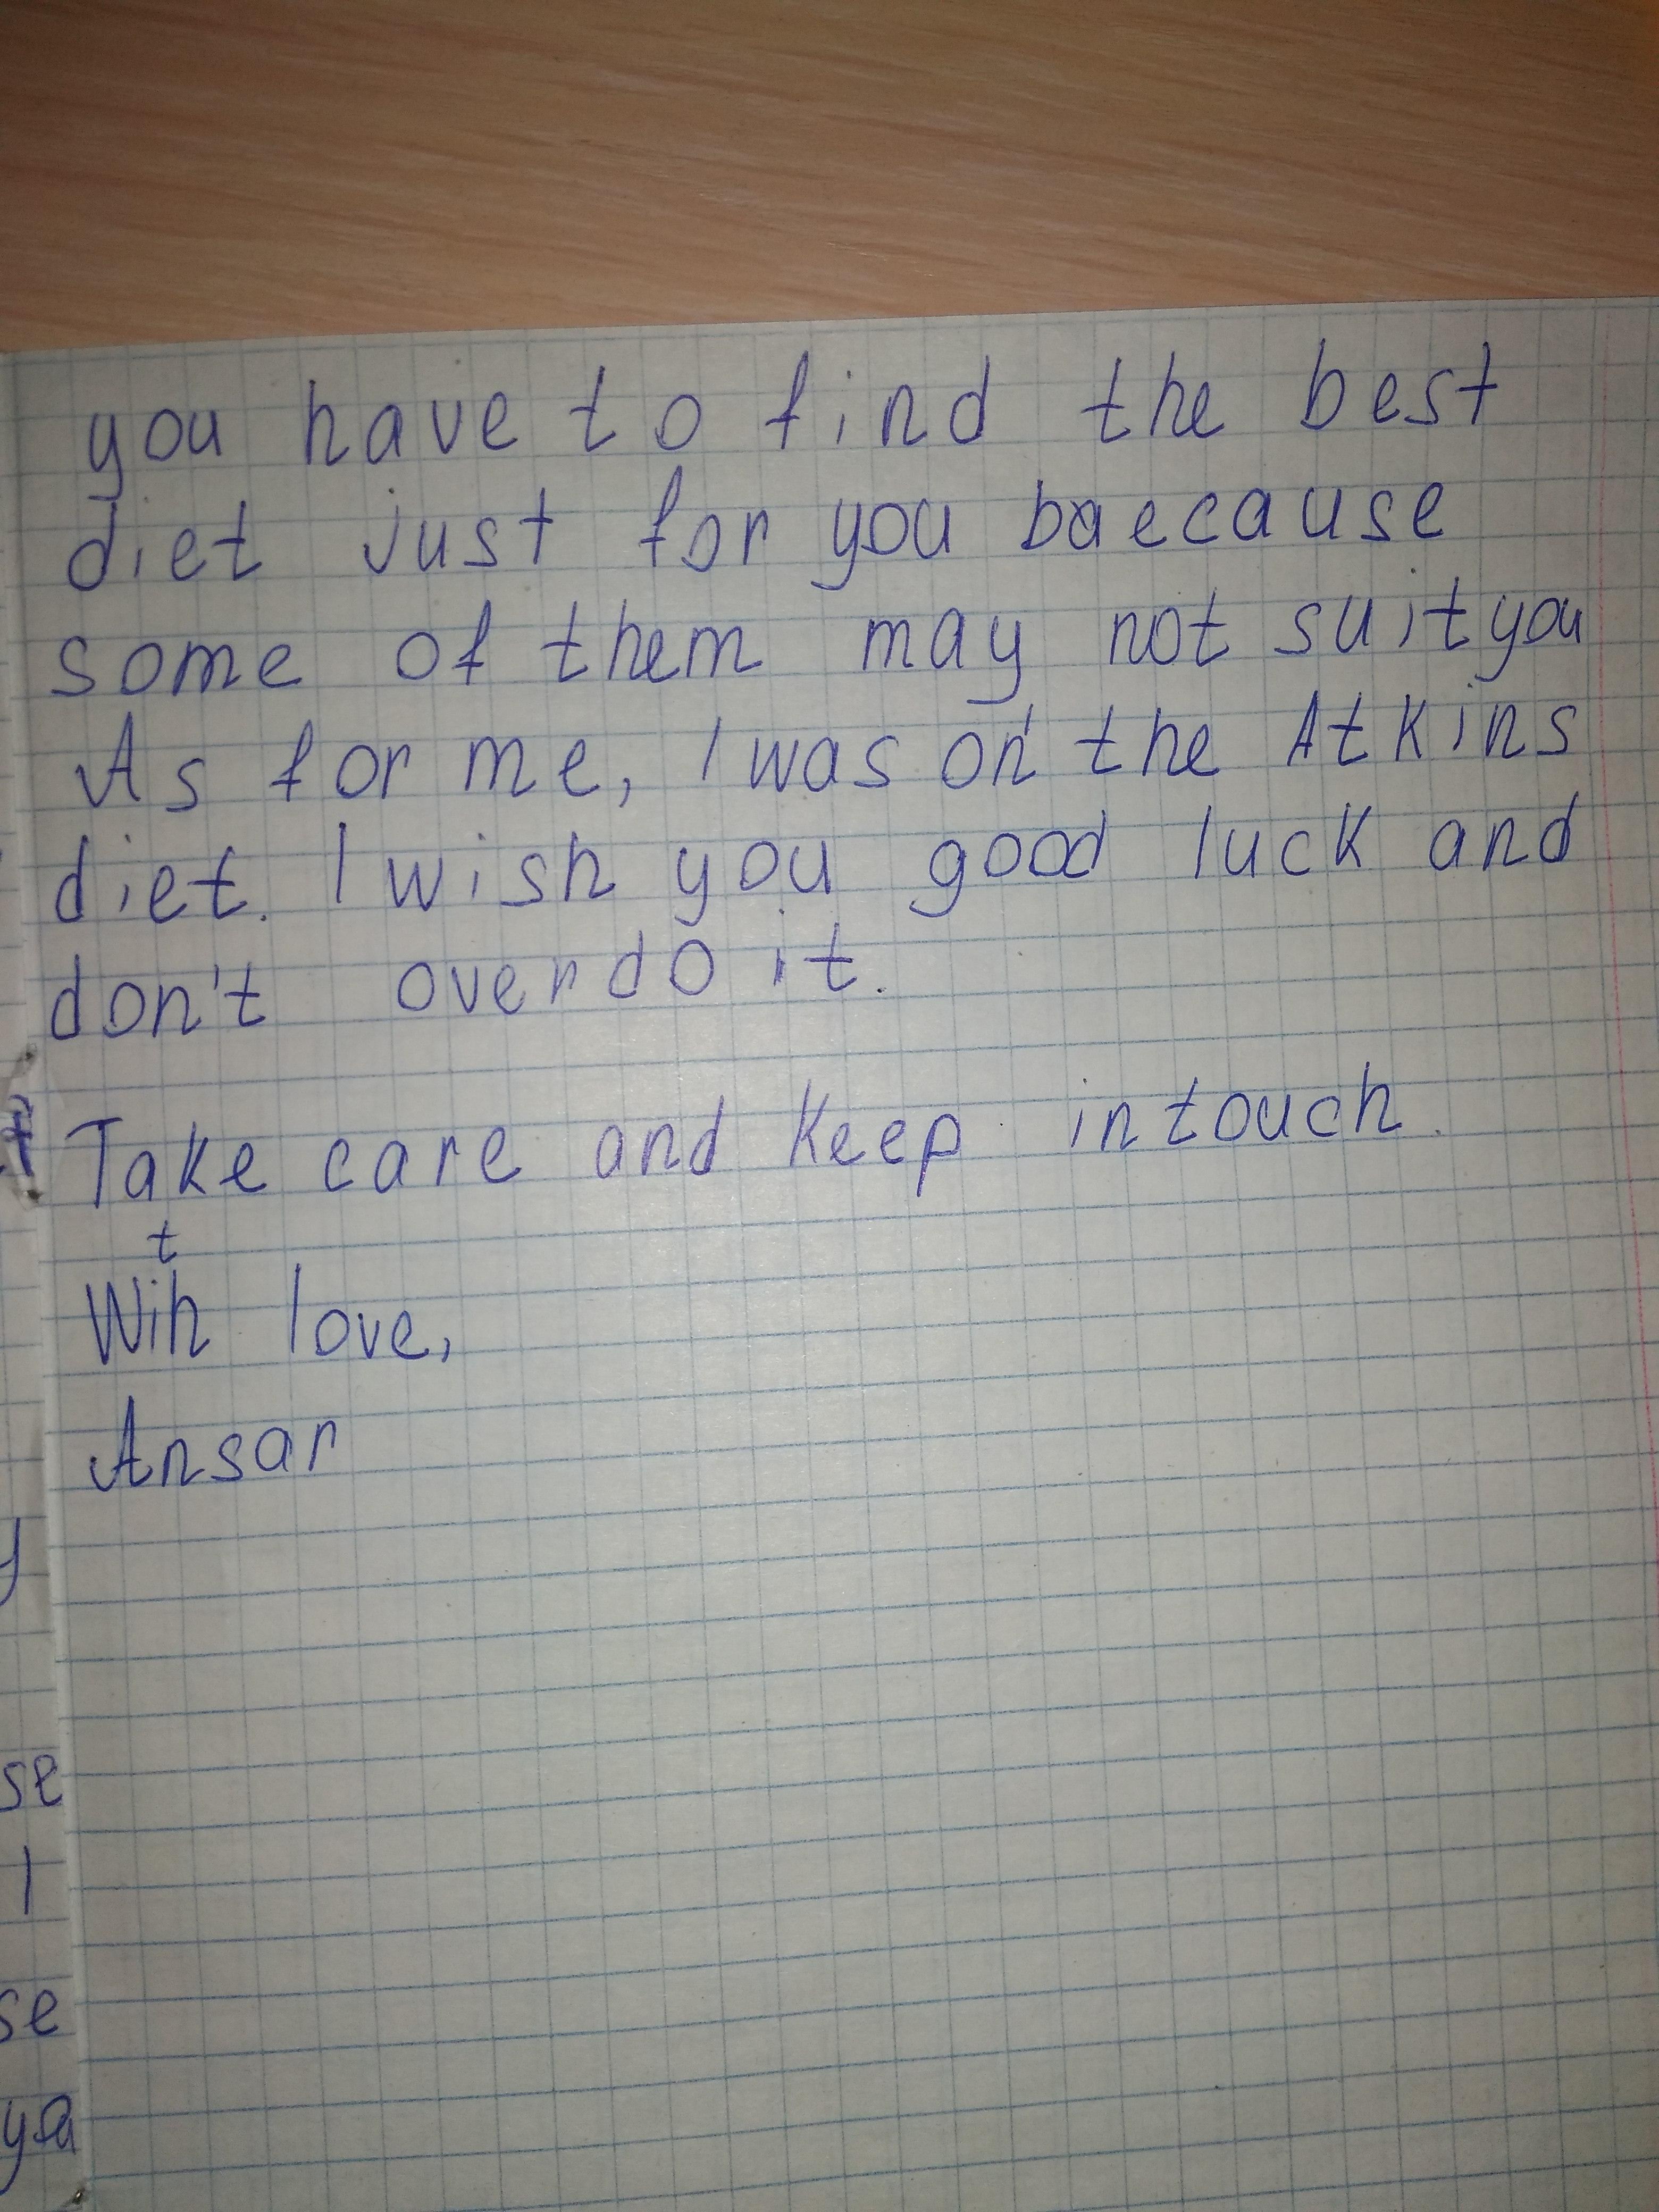 you have to find the best
diet just for you baecause
some of them may not suit you
As for me, I was on the Atkins
diet. I wish you good luck and
don't overdo it.
Take care and keep in touch.
t
Wih love,
Ansar
y
se
I
se
ya